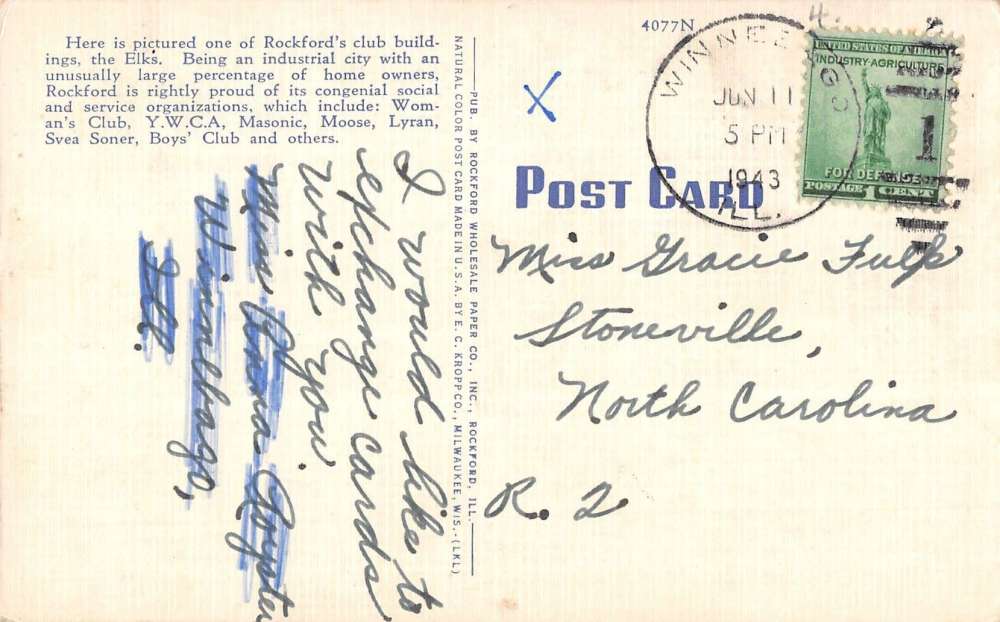 Here is pictured one of Rockford's club build-
ings, the Elks. Being an industrial city with an
unusually large percentage of home owners,
Rockford is rightly proud of its congenial social
and service organizations, which include: Wom-
an's Club, Y.W.C.A, Masonic, Moose, Lyran,
Svea Soner, Boys' Club and others.
I would like to
exchange cards
with you.
Miss Anna Royster
Winnebago,
Ill.
PUB. BY ROCKFORD WHOLESALE PAPER CO., INC., ROCKFORD, ILL.
NATURAL COLOR POST CARD MADE IN U.S.A. BY E. C. KROPP CO., MILWAUKEE, WIS.-(LKL)
4077N
X
4.
WINNEBAGO
JUN 11
5 PM
1943
ILL.
UNITED STATES OF AMERICA
INDUSTRY·AGRICULTURE
FOR DEFENSE
POSTAGE 1 CENT
1
POST CARD
Miss Gracie Fulp
Stoneville,
North Carolina
R. 2